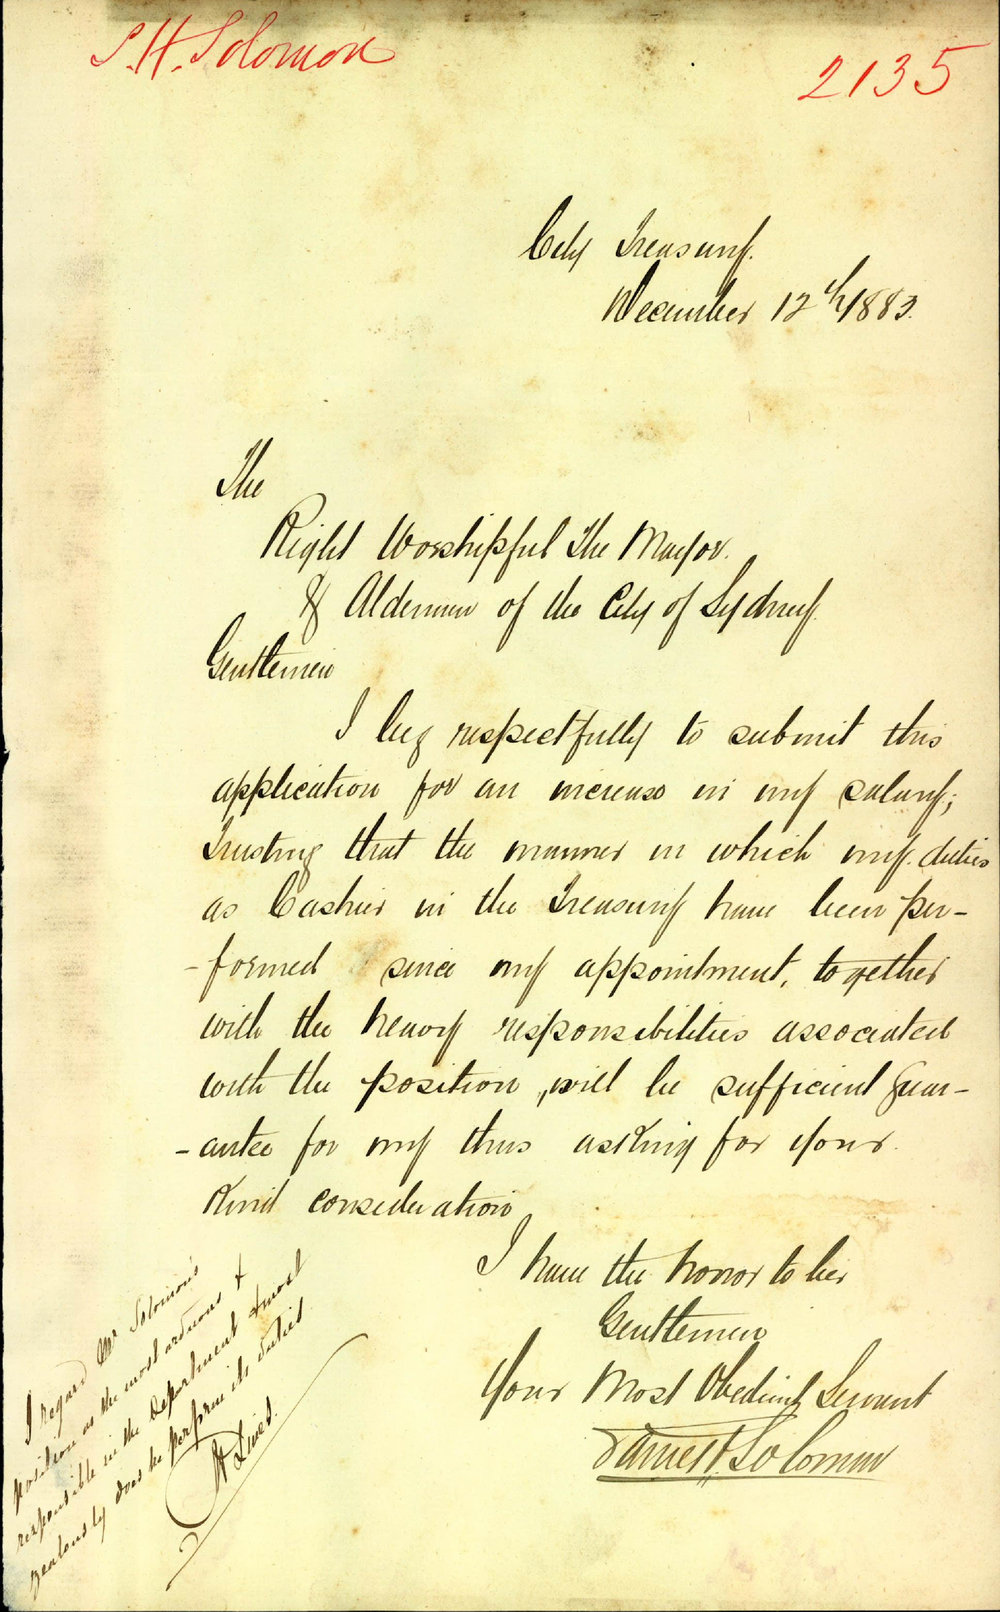 S.H. Solomon
2135
City Treasury.
December 12th 1883.
The
Right Worshipful The Mayor.
& Aldermen of the City of Sydney.
Gentlemen
I beg respectfully to submit this
application for an increase in my salary;
Trusting that the manner in which my duties
as Cashier in the Treasury have been per-
-formed since my appointment, together
with the heavy responsibilities associated
with the position, will be sufficient guar-
-antee for my thus asking for your
kind consideration
I have the honor to be
Gentlemen
Your Most Obedient Servant
James H. Solomon
I regard Mr Solomon's
position as the most arduous &
responsible in the Department & most
zealously does he perform its duties